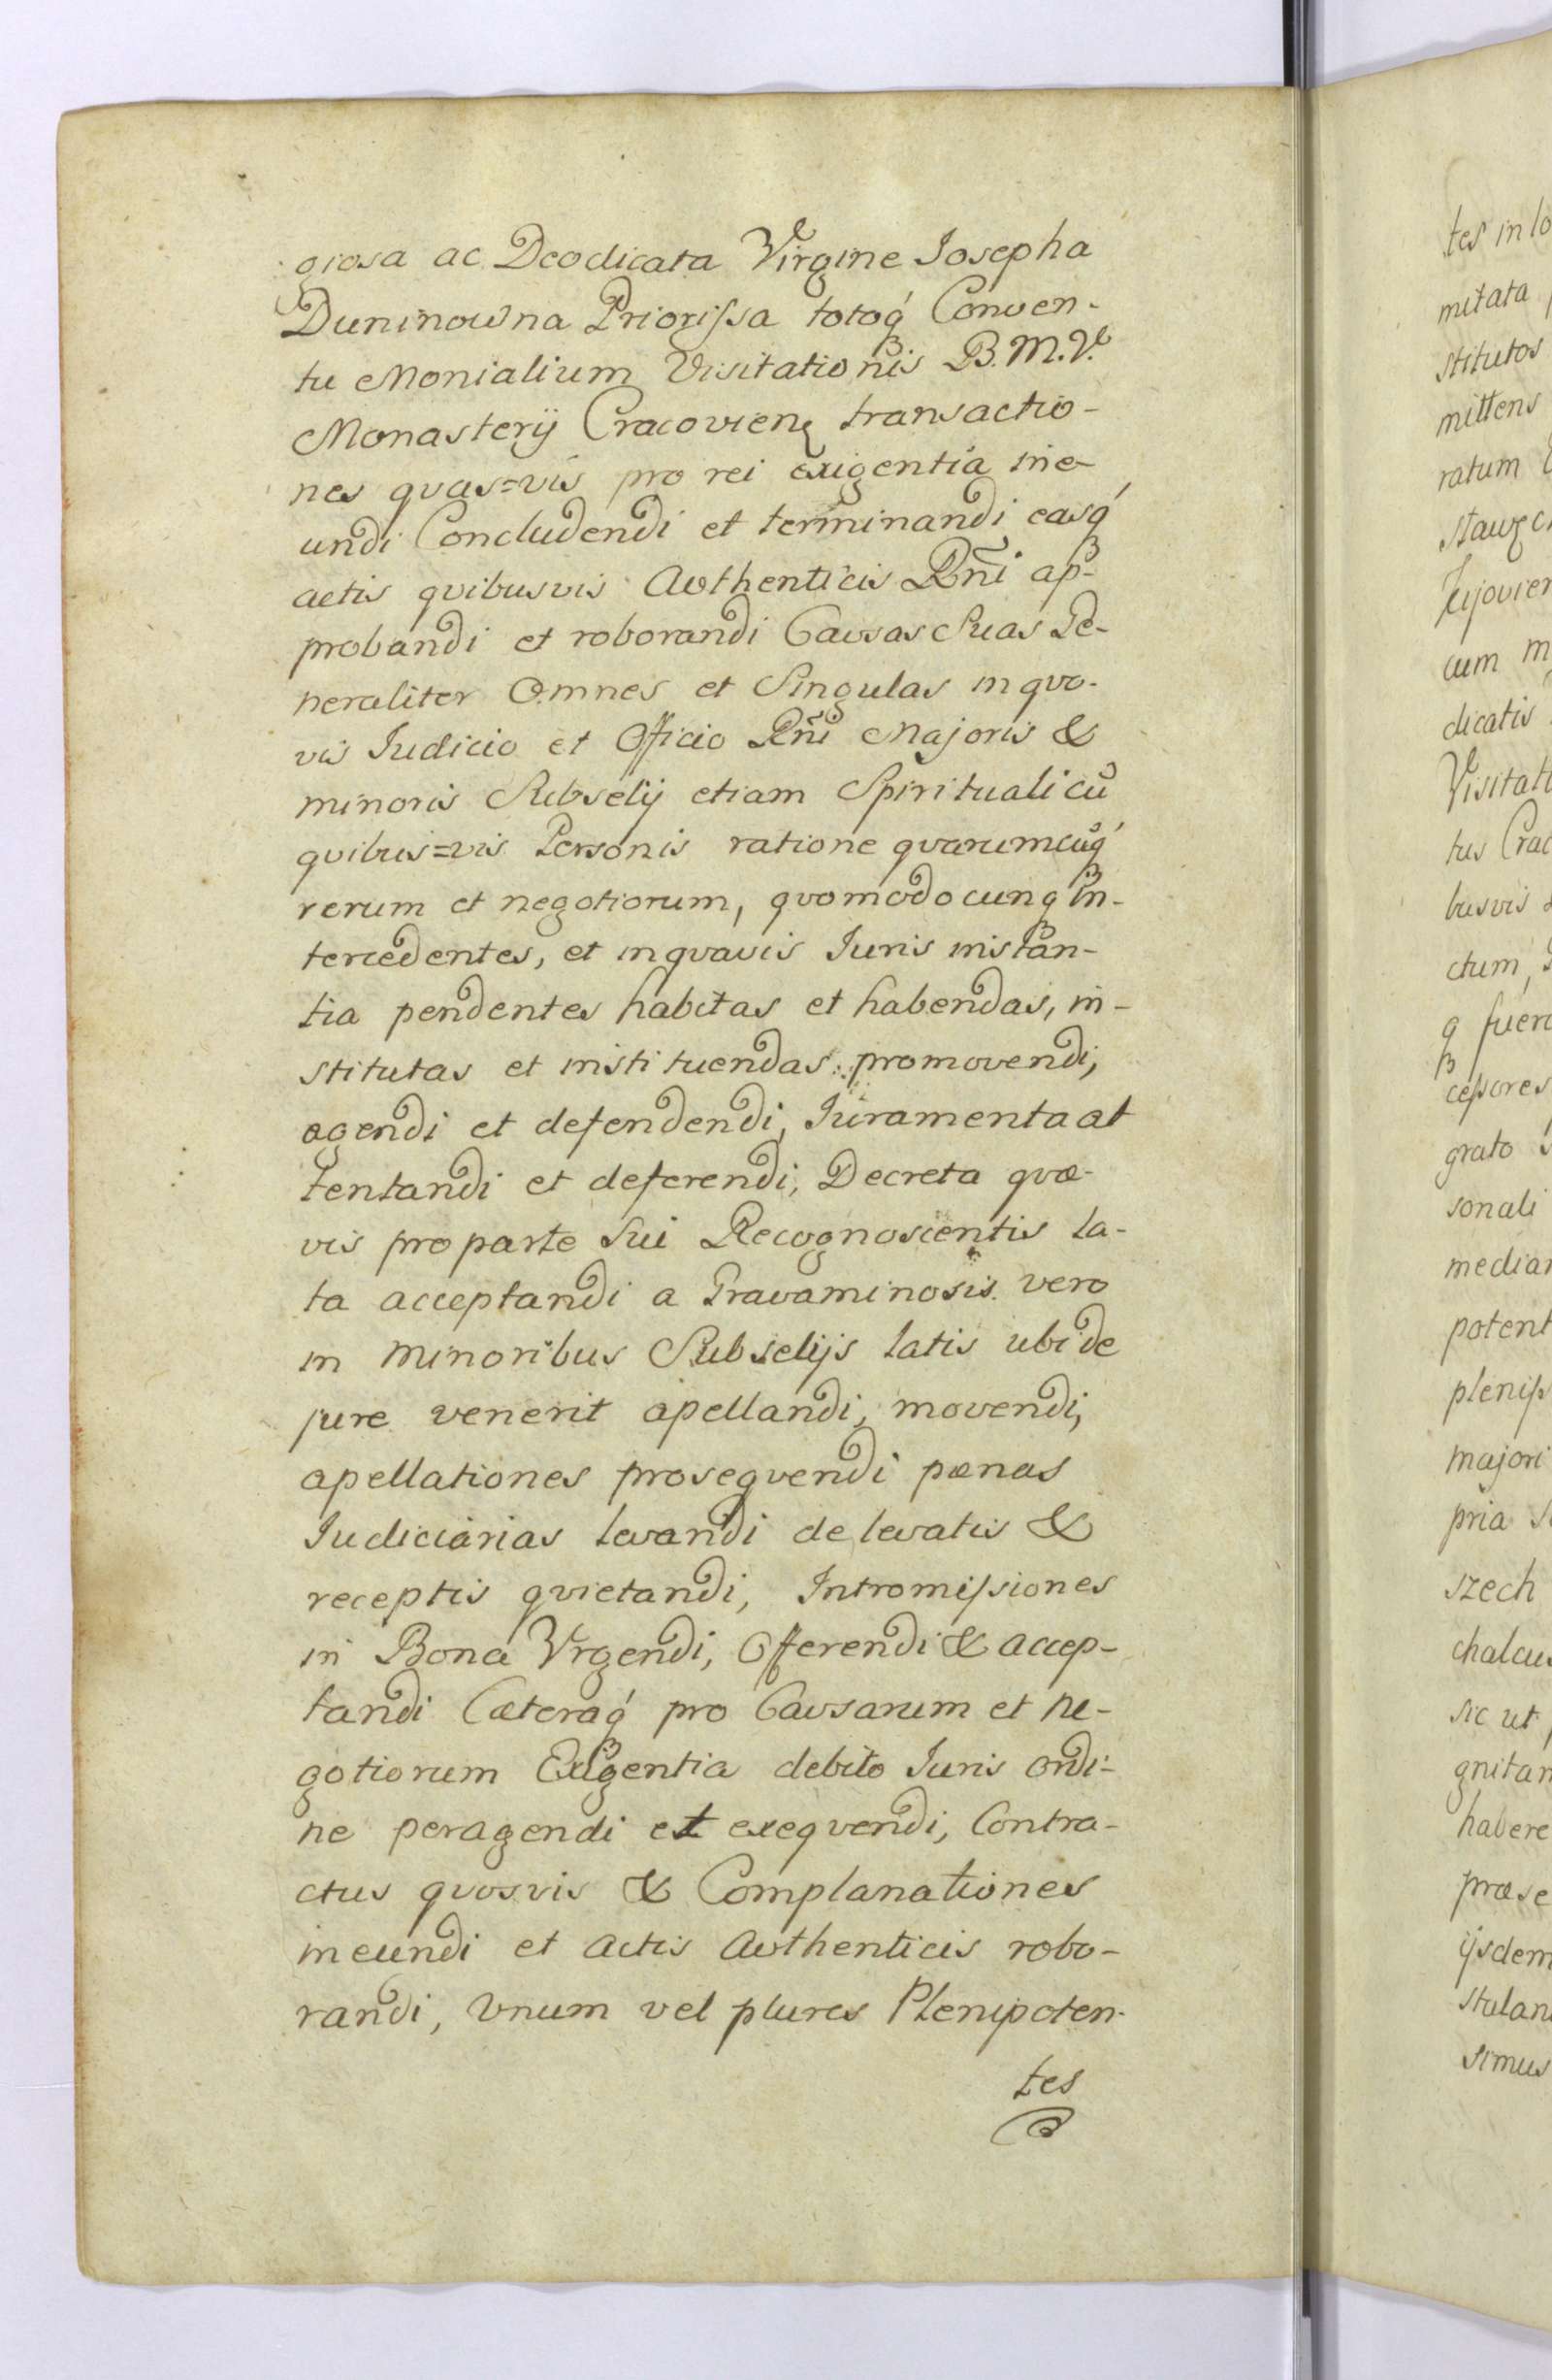 giosa ac Deodicata Virgine Josepha
Duninowna Priorissa totoq́ Conven-
tu Monialium Visitationis B. M. V.
Monasterij Cracovien transactio-
nes qvas=vis pro rei exigentia ine-
undi Concludendi et terminandi easq́
actis qvibusvis Avthenticis Rñi ap-
probandi et roborandi Cavsas Suas Ge-
neraliter Omnes et Singulas in qvo-
vis Iudicio et Officio Rñi Majoris &
minoris Subselij etiam Spirituali cũ
qvibus=vis Personis ratione qvarumcũq́
rerum et negotiorum, qvomodocunq in-
tercedentes, et in qvavis Iuris instan-
tia pendentes habitas et habendas, in-
stitutas et instituendas promovendi,
agendi et defendendi, Iuramenta at
tentandi et deferendi, Decreta qvæ-
vis pro parte Sui Recognoscentis la-
ta acceptandi a Gravaminosis vero
in minoribus Subselijs latis ubi de
jure venerit apellandi, movendi,
apellationes proseqvendi pænas
Iudiciarias levandi de levatis &
receptis qvietandi, Intromissiones
in Bona Vrgendi, Offerendi & accep-
tandi Cæteraq́ pro Cavsarum et ne-
gotiorum Exigentia debito Iuris ordi-
ne peragendi et exeqvendi, Contra-
ctus qvosvis & Complanationes
ineundi et actis Avthenticis robo-
randi, Vnum vel plures Plenipoten-
tes
tes in lo
mitata
stitutos
mittens
ratum
cum m
dicatis
Visitati
tus Crac
busvis
ctum,
q fuer
cessores
grato
sonali
median
potent
pleniss
majori
pria
szech
chalcus
sic ut
gnitan
habere
præse
ijsdem
stulan
simus